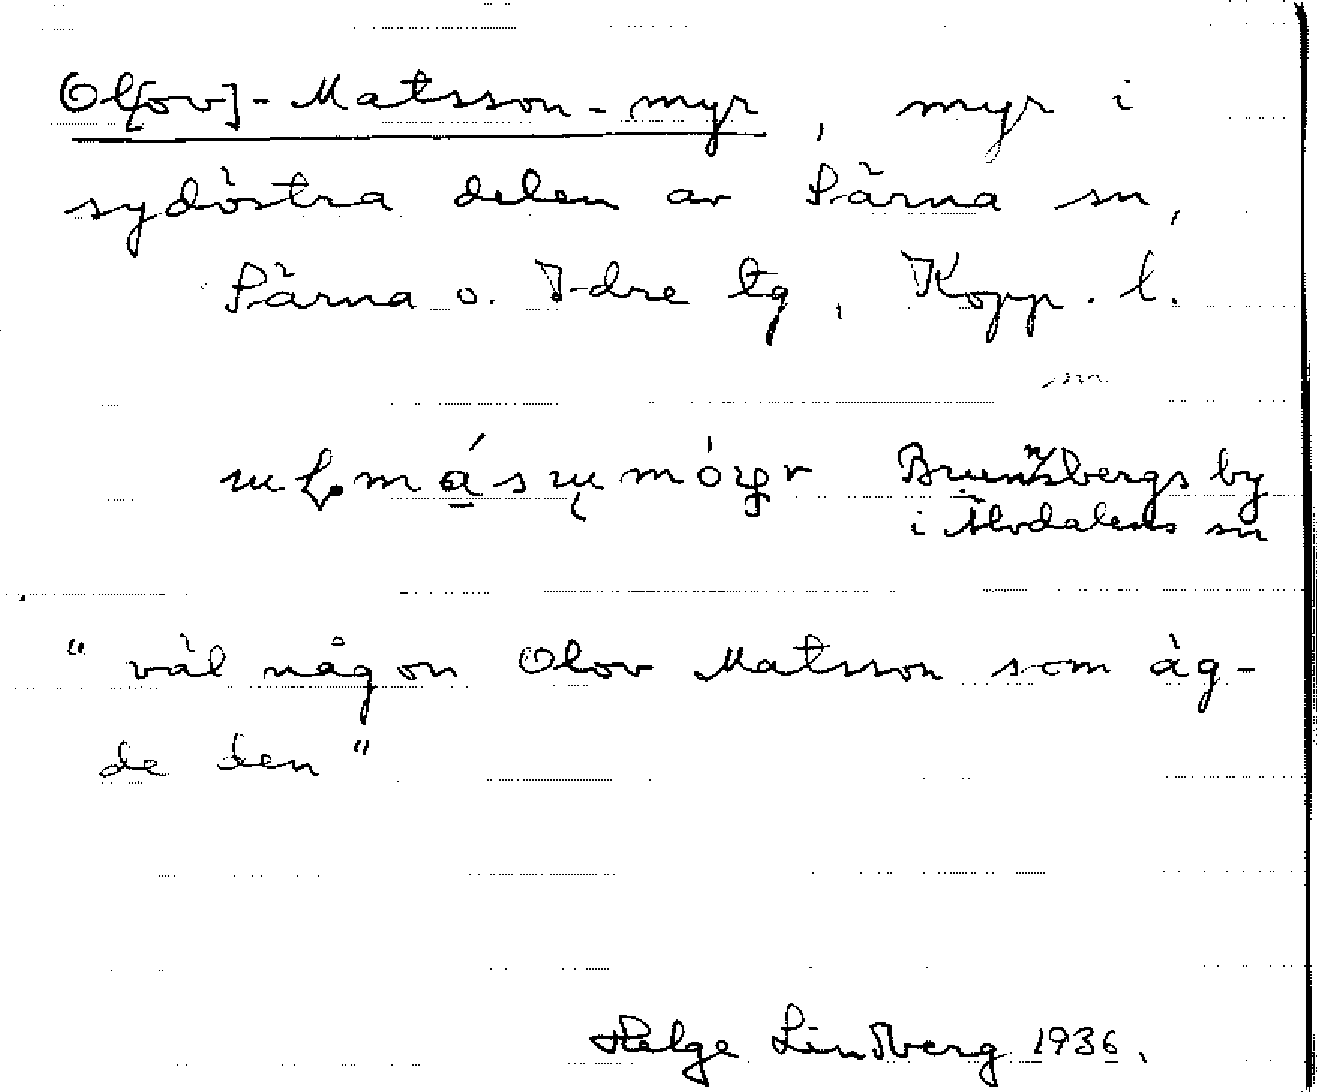 Ol[ov]-Matsson-myr, myr i
sydöstra delen av Särna sn,
Särna o. Idre tg, Kopp. l.
sn
Brunnsbergs by
i Älvdalens sn
"väl någon Olov Matsson som äg-
de den"
Helge Lindberg 1936.